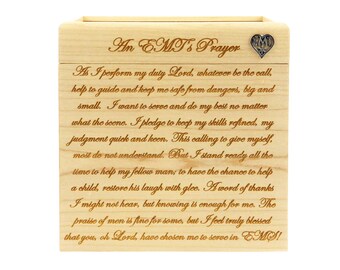 An EMT's Prayer
As I perform my duty Lord, whatever be the call,
help to guide and keep me safe from dangers, big and
small. I want to serve and do my best no matter
what the scene. I pledge to keep my skills refined, my
judgment quick and keen. This calling to give myself,
most do not understand. But I stand ready all the
time to help my fellow man; to have the chance to help
a child, restore his laugh with glee. A word of thanks
I might not hear, but knowing is enough for me. The
praise of men is fine for some, but I feel truly blessed
that you, oh Lord, have chosen me to serve in EMS!